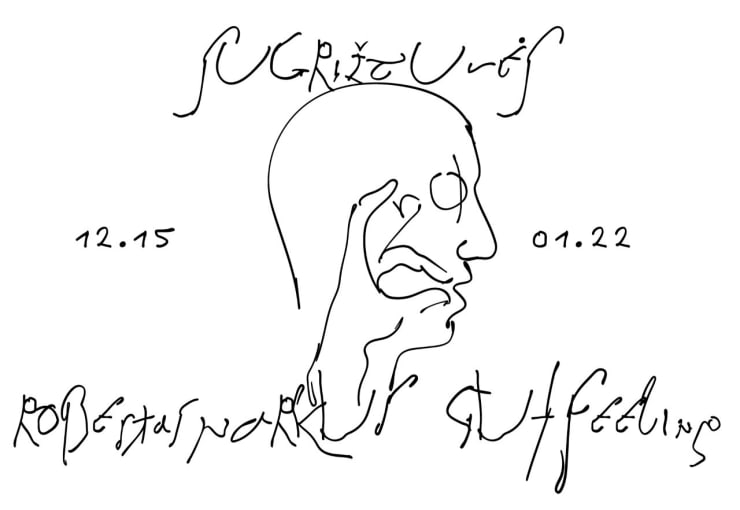 SUGRĮŽTUVĖS
12.15 01.22
ROBERTAS NARKUS GUT FEELINGS